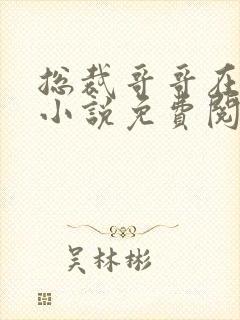 总裁哥哥在
小说免費閱
吴林彬